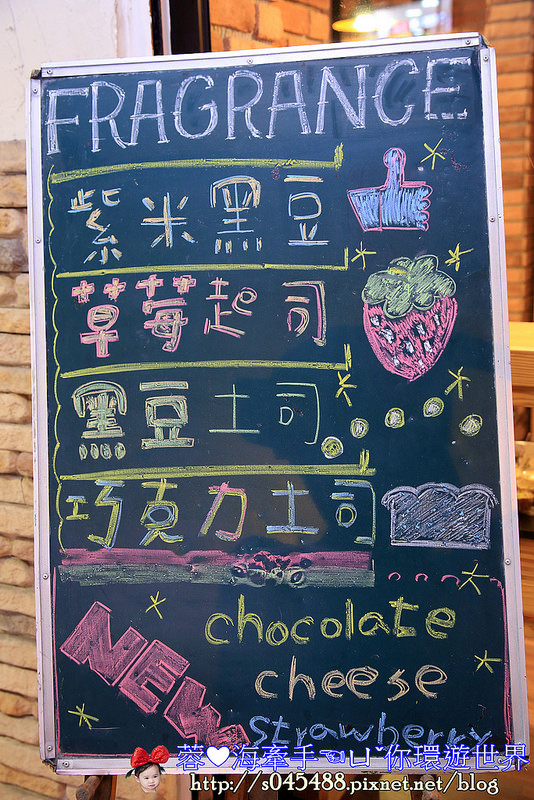 FRAGRANCE
紫米黑豆
草莓起司
黑豆土司
巧克力土司
NEW
chocolate
cheese
strawberry
蓉♥海牽手ㄩ你環遊世界
http://s045488.pixnet.net/blog